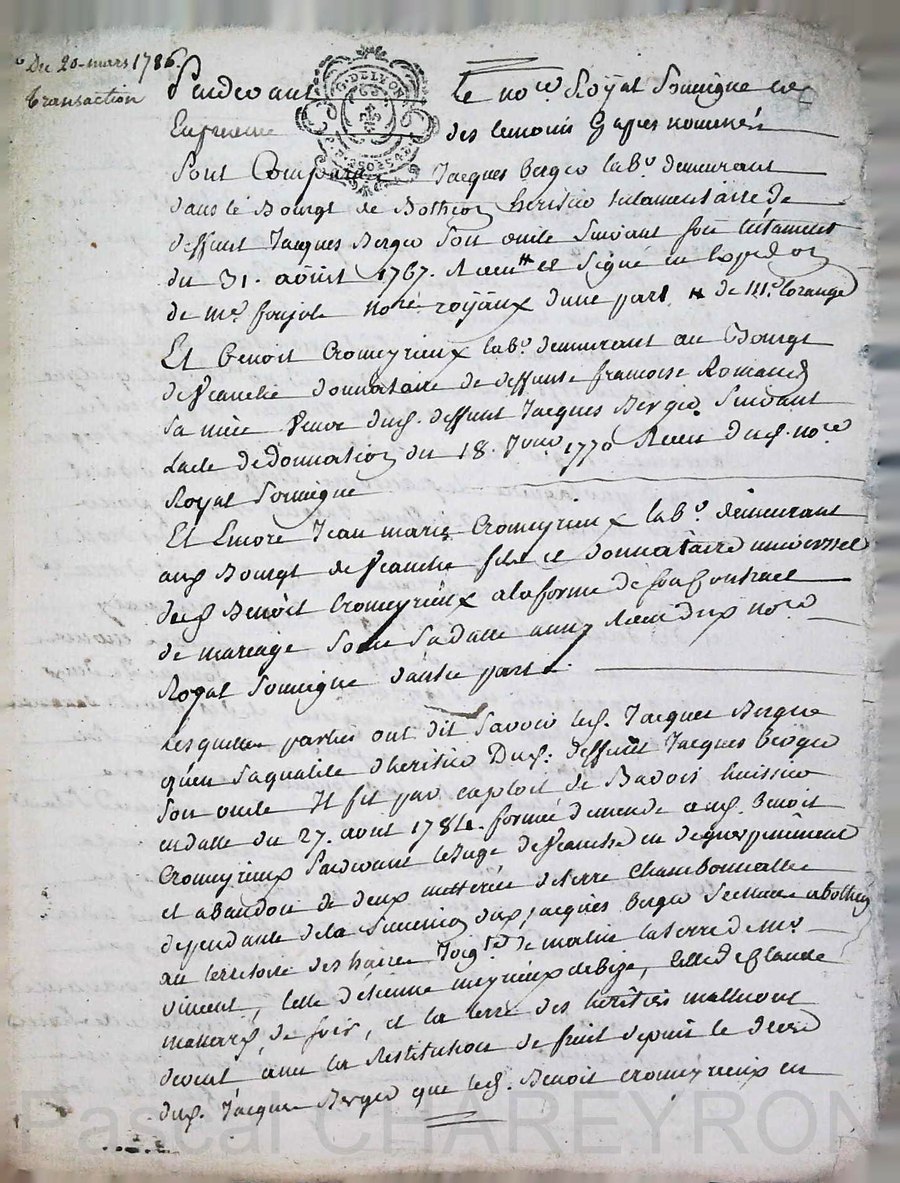 Du 20 mars 1786.
transaction
Pardevant le nore Royal soussigne et
En presence des temoins apres nommés
sont Comparu Jacques Berger labr demeurant
dans le Bourgt de Bothéon heritier testamentaire de
deffunt Jacques Berger son oncle suivant son testament
du 31. aoüst 1767. Receu et signé en expedon
de me nore royaux dune part. de Me lorange
Et Benoit Cromeyrieux labr demeurant au Bourgt
de Veauche donnataire de deffunte francoise Romand
sa mère veuve dud. deffunt Jacques Berger suivant
lacte de donnation du 18. 1770 Receu dud. nore
Royal soussigne
Et Encore Jean marie Cromeyrieux labr demeurant
aud Bourgt de Veauche fils et donnataire universel
dud Benoit Cromeyrieux a la forme de son Contract
de mariage sous sa datte Receu dud nore
Royal soussigne dautre part.
Lesquelles parties ont dit savoir led. Jacques Berger
quen sa qualité dheritier Dud. deffunt Jacques Berger
son oncle Il fit par exploit de Badois huissier
en datte du 27. aout 1784. former demande aud. Benoit
Cromeyrieux Pardevant le Juge de Veauche en deguerpissement
et abandon de deux metterée de terre Chambonnalle
dependante de la succession dud Jacques Berger scittuée a bothéon
au territoire des haires Joigt de matin la terre de Mr
vincent, celle d'etienne meyrieux de bize, celle de Claude
de soir, et la terre des heritiers
avec la Restitution de fruit depuis le deced
dud. Jacques Berger que led. Benoit Cromeyrieux en
G. DE LYON
Pascal CHAREYRON